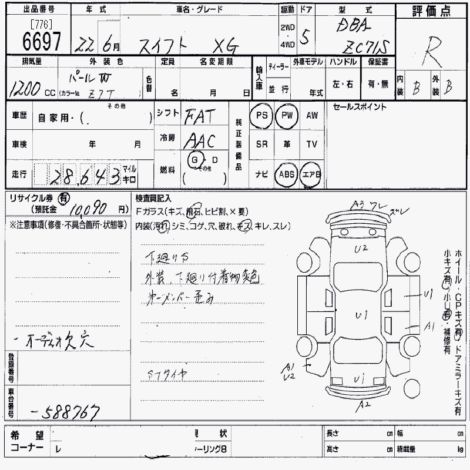 出品番号 年式 車名・グレード 駆動 ドア 評価点
[776]
6697 22年6月 スイフト XG 2WD・4WD 5 DBA ZC71S R
排気量 外装色 色替 定員 名変期限 輸入車 ディーラー 外車モデル ハンドル 保証書 内装 外装
1200 CC パールW (カラーNo. Z7T) 名 月 日 並行 年式 左・右 有・無 B B
車歴 自家用・( ) その他 シフト FAT 純正装備品 PS PW AW セールスポイント
車検 年 月 冷房 AAC SR 革 TV
走行 28,643 マイル キロ 燃料 G D (その他) ナビ ABS エアB
リサイクル券 有 検査員記入
(預託金 10,090 円) Fガラス(キズ、飛石、ヒビ割、×要)
※注意事項(修復・不具合箇所・状態等) 内装(汚れ、シミ、コゲ、穴、破れ、キズ、キレ、スレ)
下廻りサ
外装、下廻り付着物変色
歪み
-オーディオ欠穴
Sタイヤ
登録番号
車台番号 -588767
A3 ワレ ズレ
U2
U1
U1
A1
A1
U2
U1
A2
ホイール・CPキズ有 ドアミラーキズ有
小キズ有 小U有・補修有
希望コーナー レ 現状 長さ cm 幅 cm
ーリングB 高さ cm 積載量 kg